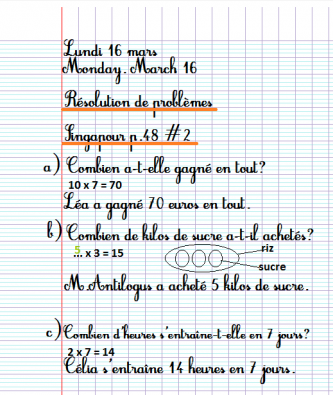 Lundi 16 mars
Monday. March 16
Résolution de problèmes
Singapour p.48 #2
a) Combien a-t-elle gagné en tout?
10 x 7 = 70
Léa a gagné 70 euros en tout.
b) Combien de kilos de sucre a-t-il achetés?
5
... x 3 = 15
riz
sucre
M.Antilogus a acheté 5 kilos de sucre.
c) Combien d'heures s'entraîne-t-elle en 7 jours?
2 x 7 = 14
Célia s'entraîne 14 heures en 7 jours.